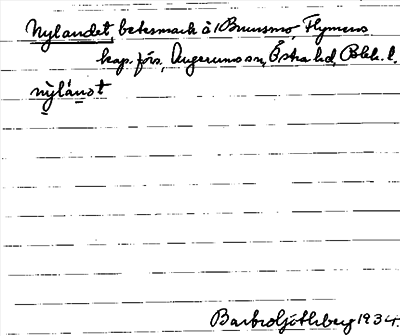 Nylandet, betesmark å 1 Brunsmo, Flymens
kap.förs., Augerums sn, Östra hd, Blek. l.
nỳlánət
Barbro Ljöthberg 1934.